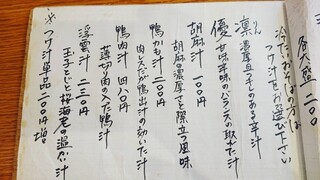 各大盛 二〇〇
冷たいおそばの方は
つけ汁をお選び下さい
凛 りん 濃厚且つキレのある辛汁
優 甘味辛味のバランスの取れた汁
胡麻汁 一〇〇円
胡麻の濃厚さと際立つ風味
鴨かも汁 二〇〇円
肉なしだが鴨出汁の効いた汁
鴨肉汁 四八〇円
葱と肉の入った鴨汁
浮雲汁 二三〇円
玉子とじと桜海老の温かい汁
※つけ汁単品二〇〇円増。